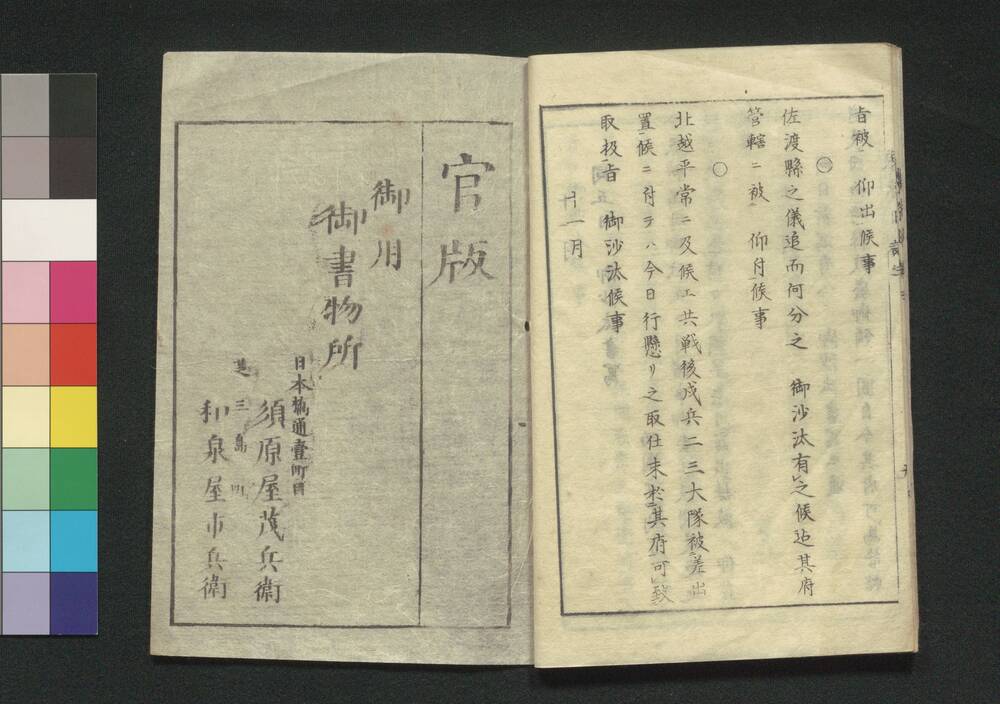 旨被　仰出候事
○
佐渡縣之儀追而何分之　御沙汰有之候迄其府
管轄ニ被　仰付候事
○
北越平常ニ及候エ共戦後戍兵二三大隊被差出
置候ニ付テハ今日行懸リ之取仕末於其府可致
取扱旨　御沙汰候事
十一月
官版
御用
御書物所
日本橋通壹町目
須原屋茂兵衛
芝三島町
和泉屋市兵衛